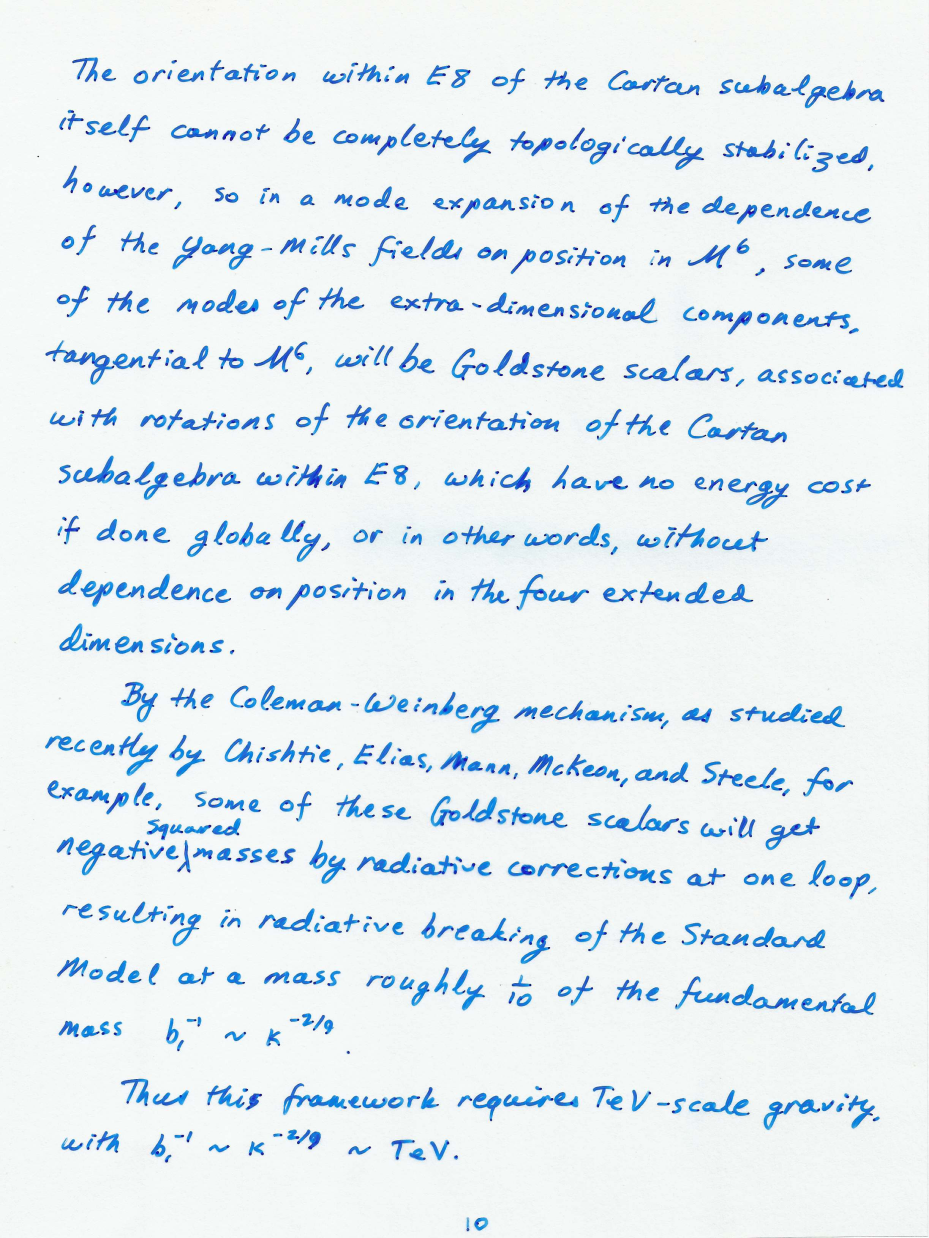 The orientation within E8 of the Cartan subalgebra
itself cannot be completely topologically stabilized,
however, so in a mode expansion of the dependence
of the Yang-Mills fields on position in M⁶, some
of the modes of the extra-dimensional components,
tangential to M⁶, will be Goldstone scalars, associated
with rotations of the orientation of the Cartan
subalgebra within E8, which have no energy cost
if done globally, or in other words, without
dependence on position in the four extended
dimensions.
By the Coleman-Weinberg mechanism, as studied
recently by Chishtie, Elias, Mann, McKeon, and Steele, for
example, some of these Goldstone scalars will get
squared
negative masses by radiative corrections at one loop,
resulting in radiative breaking of the Standard
Model at a mass roughly 1/10 of the fundamental
mass b₁⁻¹ ~ κ⁻²/⁹.
Thus this framework requires TeV-scale gravity,
with b₁⁻¹ ~ κ⁻²/⁹ ~ TeV.
10